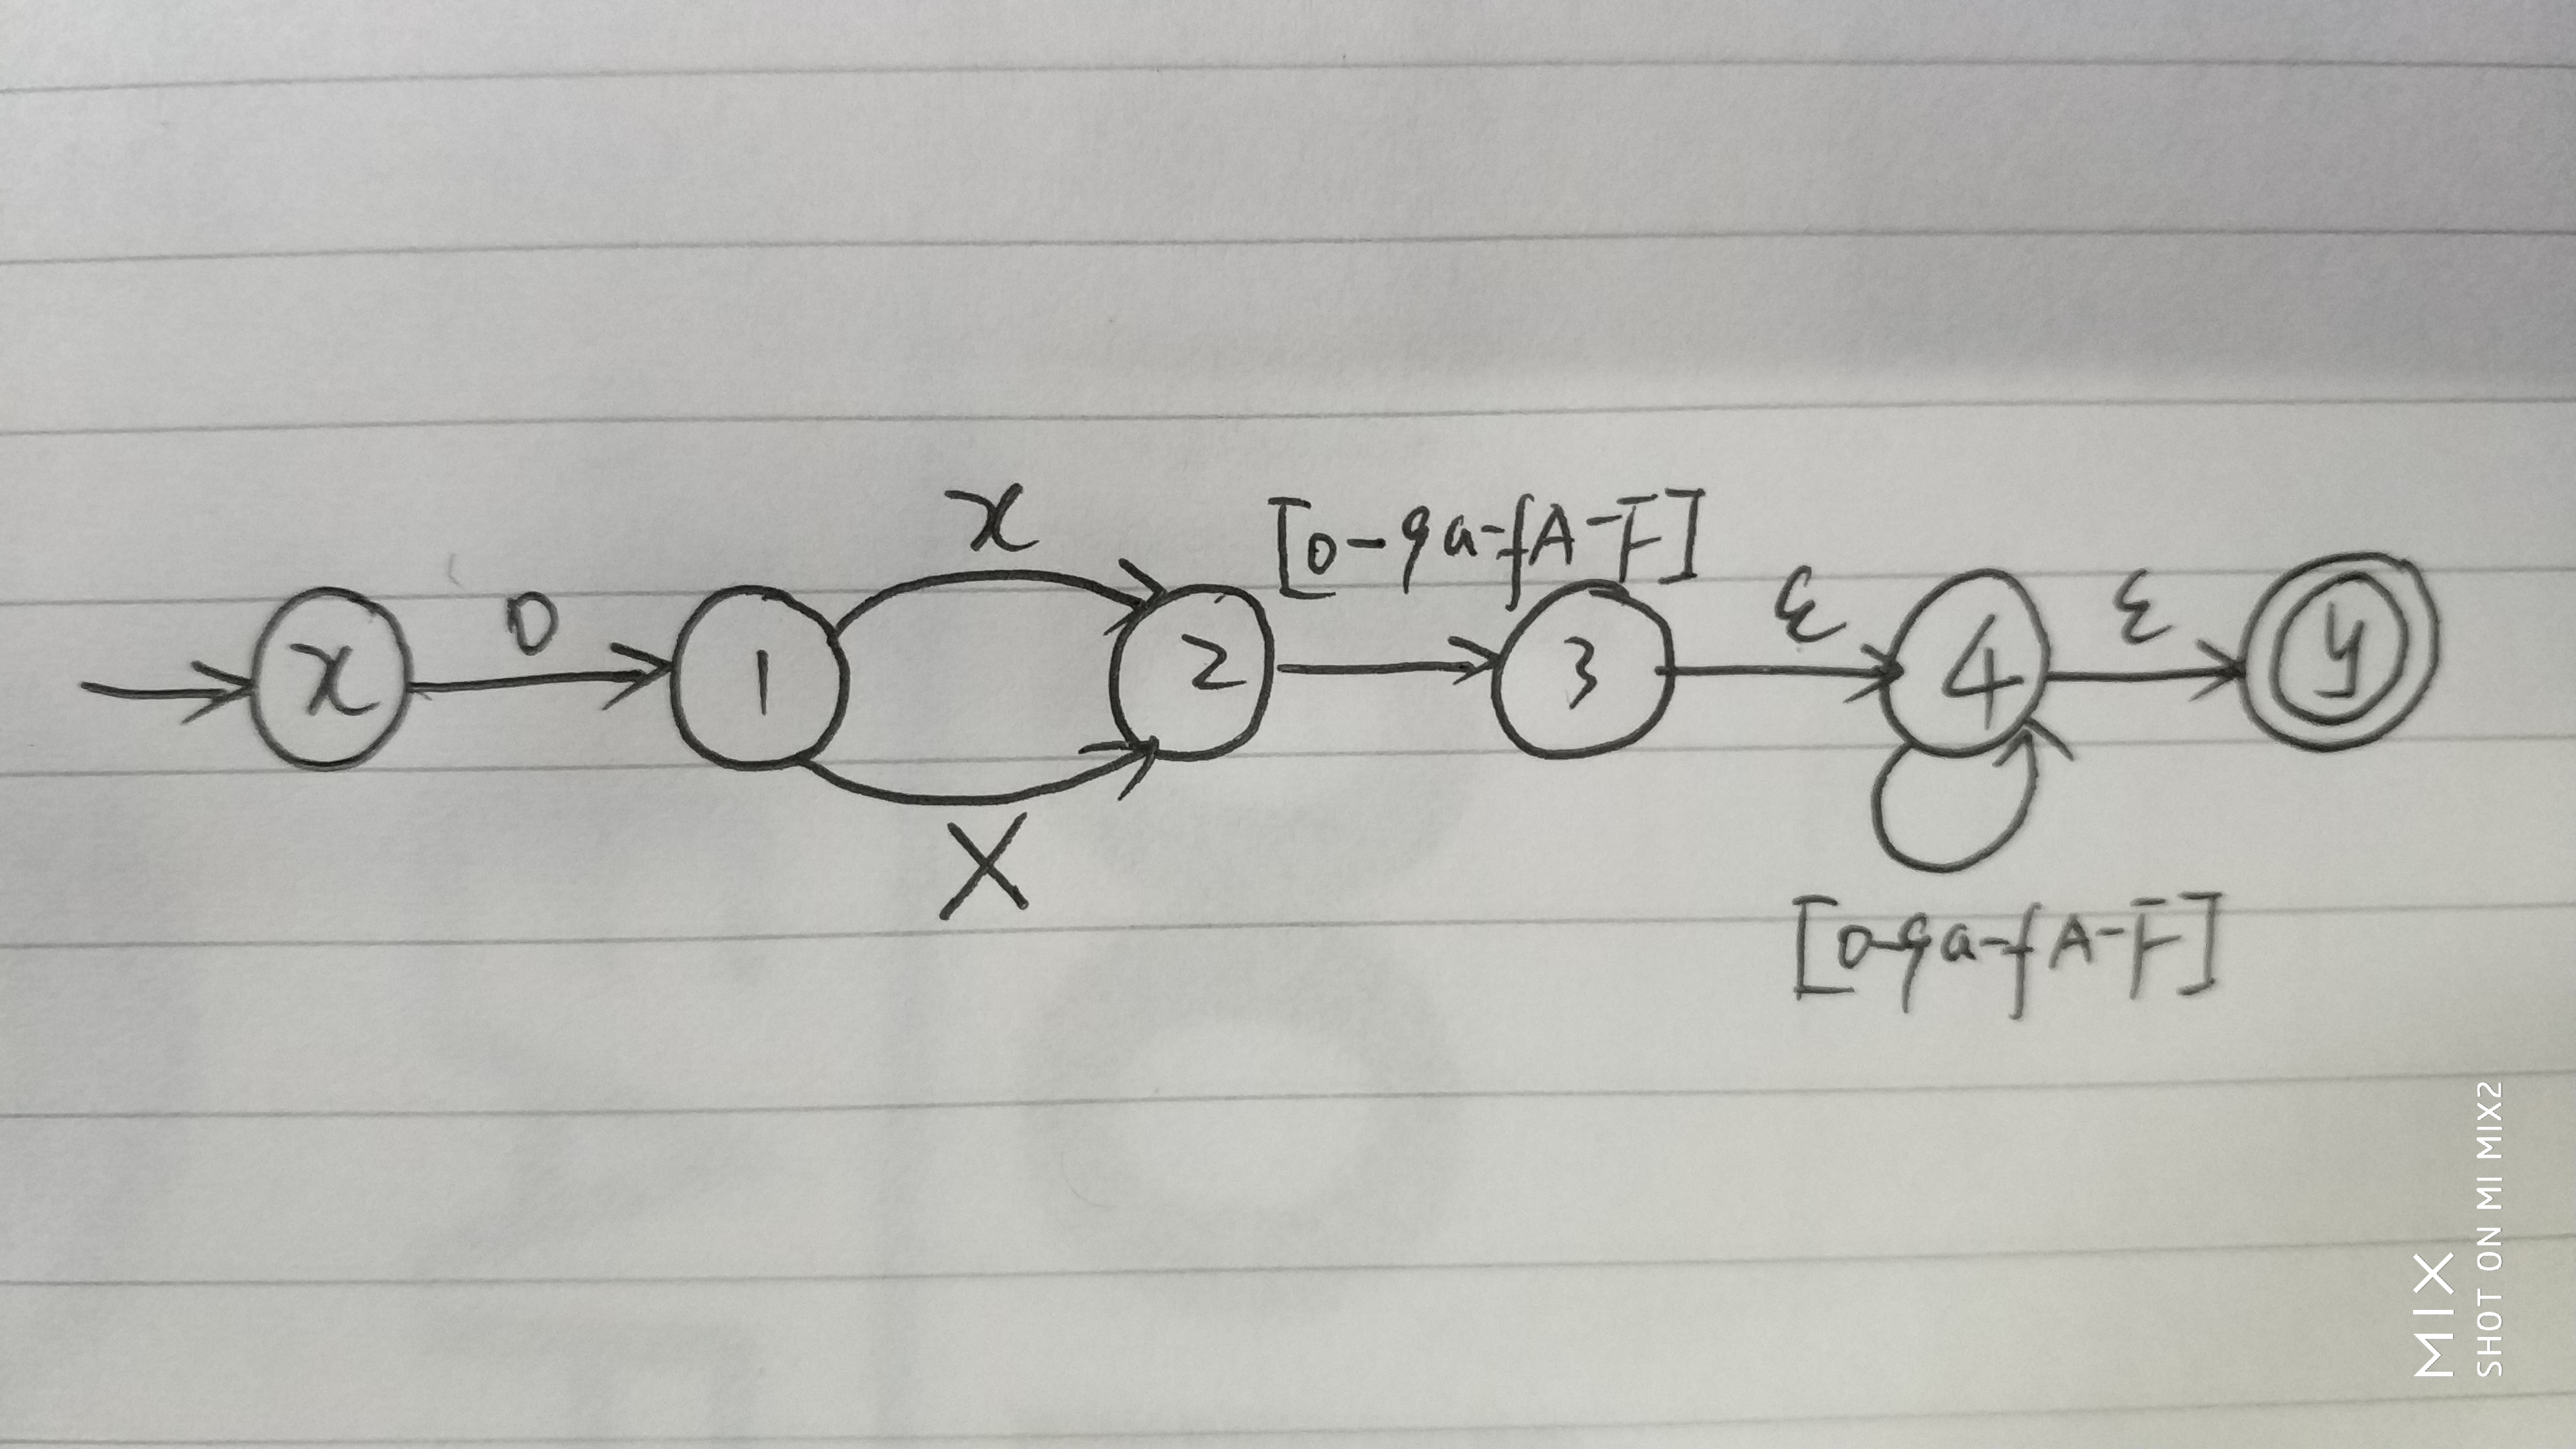 x
0
1
x
X
2
[0-9a-fA-F]
3
ε
4
[0-9a-fA-F]
ε
y
MIX
SHOT ON MI MIX2